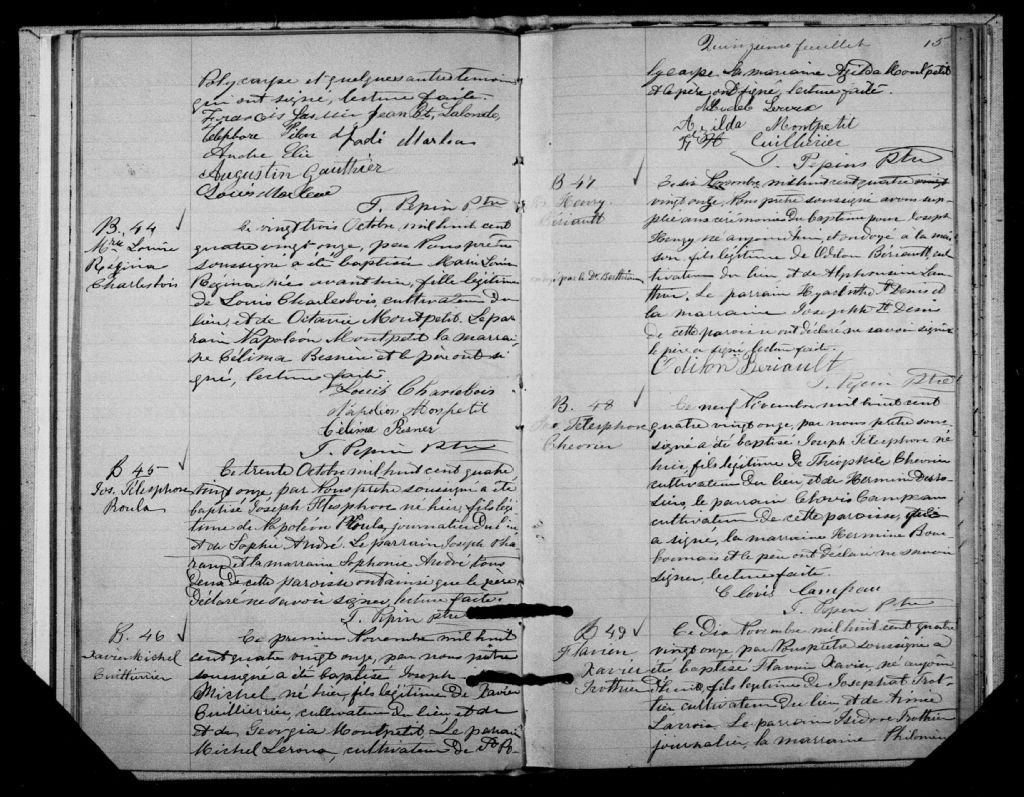 Polycarpe et quelques autres temoins
qui ont signé, lecture faite.
Jean Bt. Lalonde,
Telesphore Pilon
André Elie
Augustin Gauthier
Louis
J. Pepin Ptre
B. 44
Mrie Louise
Régina
Charlesbois
Le vingt trois Octobre mil huit cent
quatre vingt onze, par Nous prêtre
soussigné a été baptisée Marie Louise
Regina née avant hier, fille légitime
de Louis Charlesbois, cultivateur du
lieu, et de Octavie Montpetit. Le par-
rain Napoléon Montpetit la marrai-
ne Célima Besner et le père ont si
gné, lecture faite
Louis Charlebois
Napoléon Monpetit
Célima Besner
J. Pepin Ptre
B 45
Jos. Télesphore
Roula
Ce trente Octobre mil huit cent quatre
vingt onze par Nous prêtre soussigné a été
baptisé Joseph Télesphore né hier, fils légi
time de Napoléon Roula, journalier du lieu
et de Sophie André. Le parrain Joseph
et la marraine Sophronie André tous
deux de cette paroisse ont ainsi que le père
déclaré ne savoir signer, lecture faite.
J. Pepin Ptre
B. 46
Xavier Michel
Cuillierrier
Ce premier Novembre mil huit
cent quatre vingt onze, par nous prêtre
soussigné a été baptisé Joseph
Michel né hier, fils légitime de Xavier
Cuillierrier, cultivateur du lieu, et de
et de Georgia Montpetit. Le parrain
Michel Leroux, cultivateur de St Po-
Quinzieme feuillet 15
lycarpe la marraine Azilda Montpetit
et le père ont signé, lecture faite.
Michel Leroux
Azilda Montpetit
Cuillierier
J. Pepin Ptre
B 47
Jos Henry
Bériault
ondoyé par le Dr
Le six Novembre mil huit cent quatre vingt
vingt onze, Nous prêtre soussigné avons sup-
pléé aux cérémonies du baptême pour Joseph
Henry né aujourd'hui, et ondoyé à la mai
son fils légitime de Odilon Bériault, cul
tivateur du lieu et de Alphonsine
Le parrain Hyacinthe St Denis et
la marraine Josephte St Denis
de cette paroisse ont déclaré ne savoir signer
le père a signé, lecture faite.
Odilon Beriault
J. Pepin Ptre
B. 48
Jos. Télesphore
Chevrier
Ce neuf Novembre mil huit cent
quatre vingt onze, par nous prêtre sous-
signé a été baptisé Joseph Télesphore né
hier, fils légitime de Théophile Chevrier
cultivateur du lieu et de Hermine
le parrain Clovis Campeau
cultivateur de cette paroisse, qui
a signé, la marraine Hermine Bour
bonnais et le père ont déclaré ne savoir
signer, lecture faite.
Clovis Campeau
J. Pepin Ptre
B 49
Flavien
Xavier
Trottier
Ce dix Novembre mil huit cent quatre
vingt onze, par Nous prêtre soussigné a
été baptisé Flavien Xavier, né aujour
d'hui, fils légitime de Josephat Trot-
tier cultivateur du lieu, et de Aimée
Larroix. Le parrain Isidore Trottier
journalier, la marraine Philomène